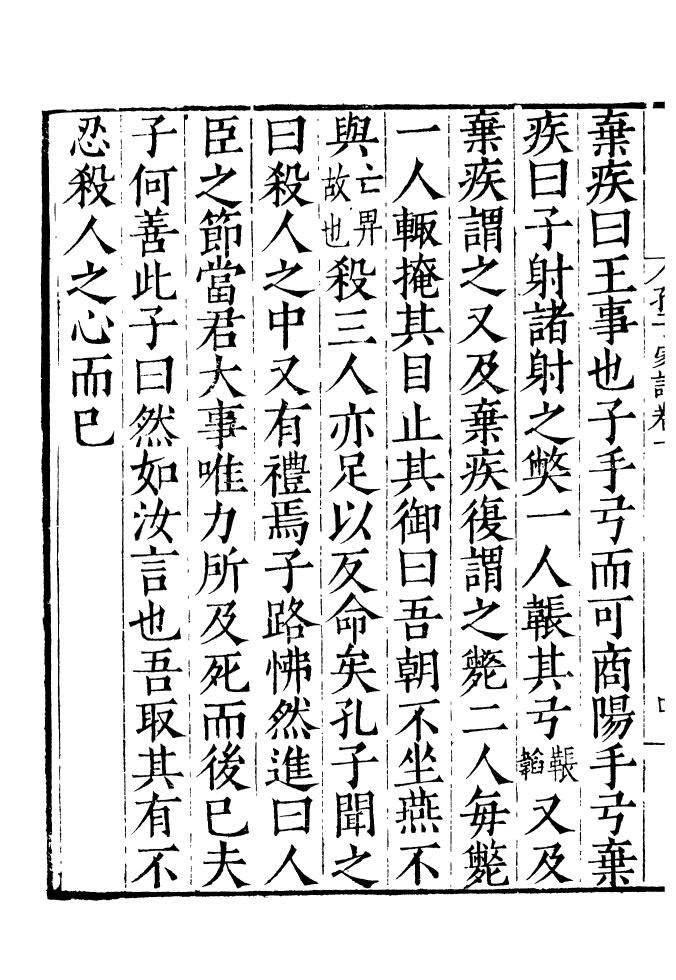 棄疾曰王事也子手弓而可商陽手弓棄
疾曰子射諸射之獘一人韔其弓韔韜又及
棄疾謂之又及棄疾復謂之斃二人每斃
一人輙掩其目止其御曰吾朝不坐燕不
與亡畀故也殺三人亦足以反命矣孔子聞之
曰殺人之中又有禮焉子路怫然進曰人
臣之節當君大事唯力所及死而後巳夫
子何善此子曰然如汝言也吾取其有不
忍殺人之心而巳